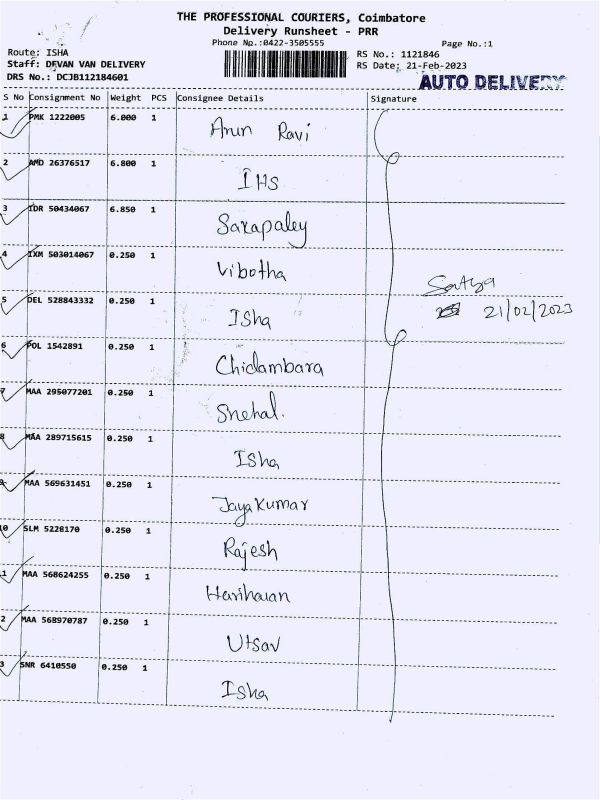 THE PROFESSIONAL COURIERS, Coimbatore
Delivery Runsheet - PRR
Phone No.:0422-3505555
Page No.:1
Route: ISHA
RS No.: 1121846
Staff: DEVAN VAN DELIVERY
RS Date: 21-Feb-2023
DRS No.: DCJB112184601
AUTO DELIVERY
S No Consignment No Weight PCS Consignee Details Signature
1 PMK 1222005 6.000 1 Arun Ravi
2 AMD 26376517 6.800 1 IHS
3 IDR 50434067 6.850 1 Sarapaley
4 IXM 503014067 0.250 1 Vibotha
Satya
5 DEL 528843332 0.250 1 Isha 21/02/2023
6 POL 1542891 0.250 1 Chidambara
7 MAA 295077201 0.250 1 Snehal.
8 MAA 289715615 0.250 1 Isha
9 MAA 569631451 0.250 1 Jaya Kumar
10 SLM 5228170 0.250 1 Rajesh
1 MAA 568624255 0.250 1 Hariharan
2 MAA 568970787 0.250 1 Utsav
3 SNR 6410550 0.250 1 Isha